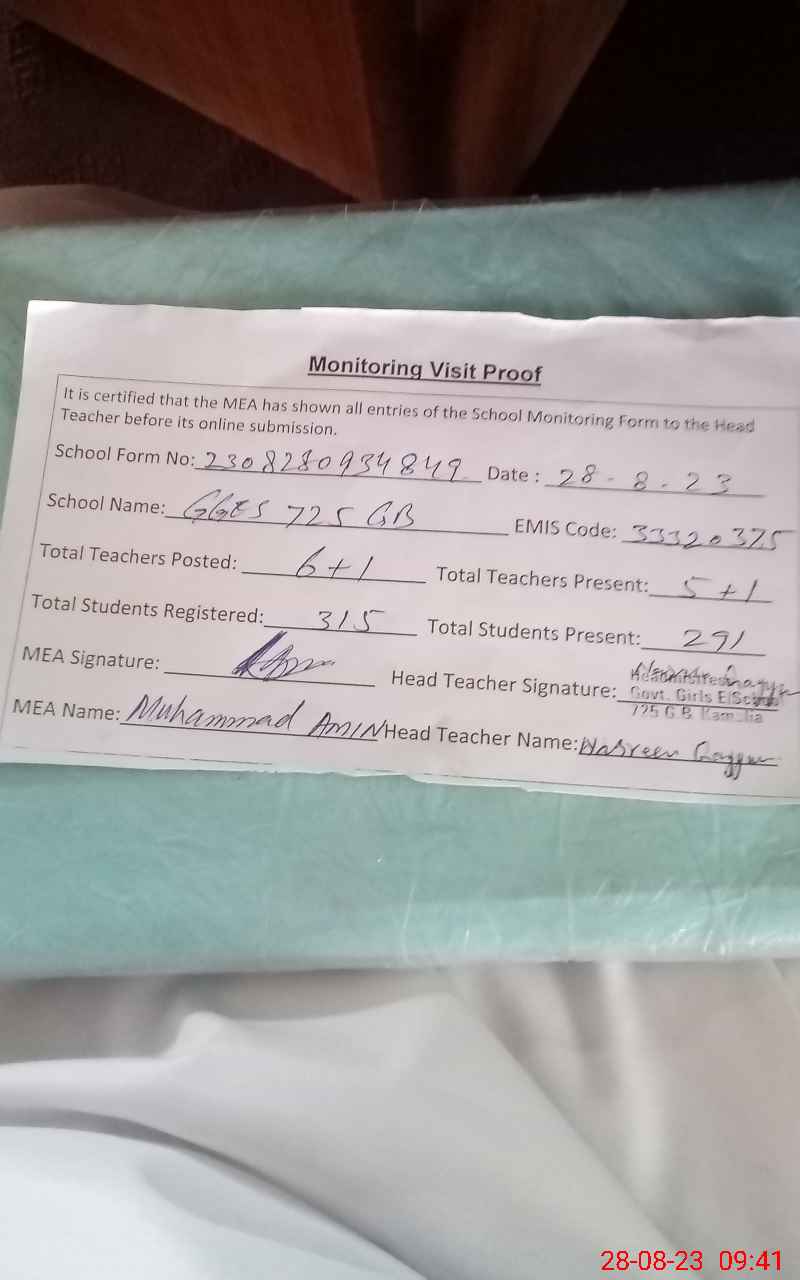 Monitoring Visit Proof
It is certified that the MEA has shown all entries of the School Monitoring Form to the Head
Teacher before its online submission.
School Form No: 2308280934849 Date : 28-8-23
School Name: GGES 725 GB EMIS Code: 33320375
Total Teachers Posted: 6+1 Total Teachers Present: 5+1
Total Students Registered: 315 Total Students Present: 291
MEA Signature: Head Teacher Signature:
Govt. Girls E/School
725 G.B Kamalia
MEA Name: Muhammad AMIN Head Teacher Name: Nasreen
28-08-23 09:41